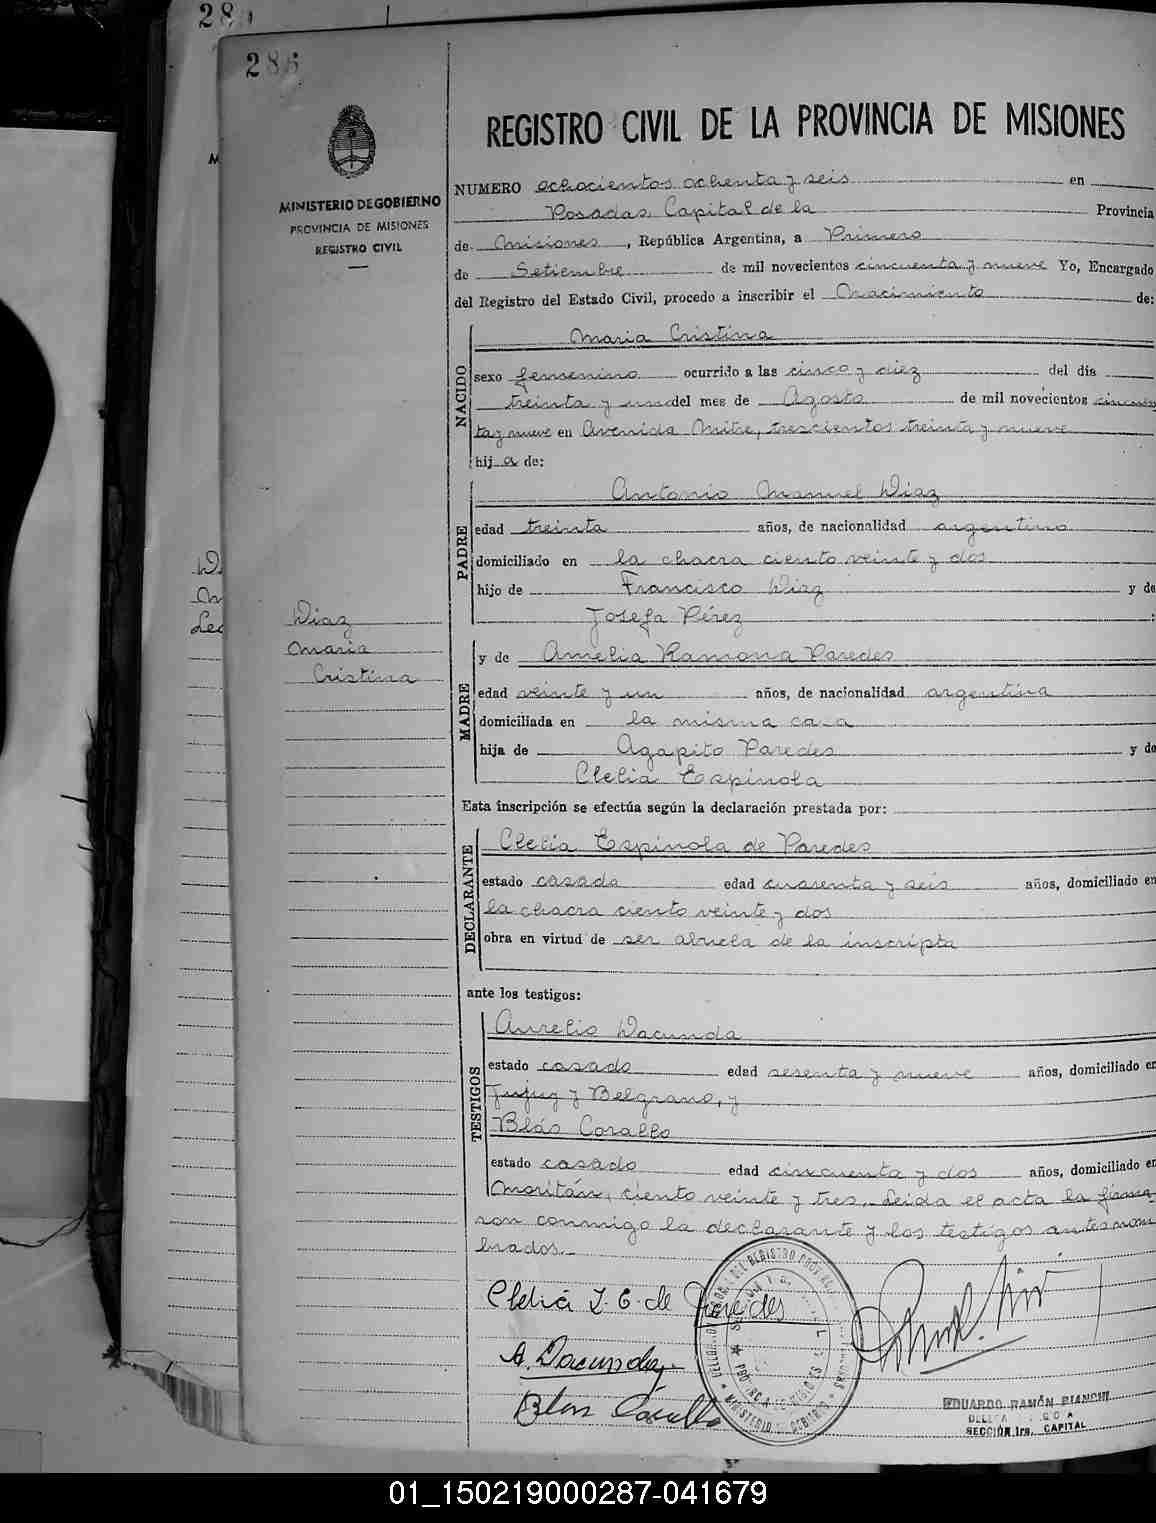 28
286
MINISTERIO DE GOBIERNO
PROVINCIA DE MISIONES
REGISTRO CIVIL
REGISTRO CIVIL DE LA PROVINCIA DE MISIONES
NUMERO ochocientos ochenta y seis en
Posadas, Capital de la Provincia
de Misiones, República Argentina, a Primero
de Setiembre de mil novecientos cincuenta y nueve Yo, Encargado
del Registro del Estado Civil, procedo a inscribir el Nacimiento de:
NACIDO
Maria Cristina
sexo femenino ocurrido a las cinco y diez del día
treinta y un del mes de Agosto de mil novecientos cincuen
ta y nueve en Avenida Mitre, trescientos treinta y nueve
hij a de:
PADRE
Antonio Manuel Diaz
edad treinta años, de nacionalidad argentino
domiciliado en la chacra ciento veinte y dos
hijo de Francisco Diaz y de
Josefa Pérez
Diaz
Maria
Cristina
MADRE
y de Amelia Ramona Paredes
edad veinte y un años, de nacionalidad argentina
domiciliada en la misma casa
hija de Agapito Paredes y de
Clelia Espinola
Esta inscripción se efectúa según la declaración prestada por:
DECLARANTE
Clelia Espinola de Paredes
estado casada edad cuarenta y seis años, domiciliado en
la chacra ciento veinte y dos
obra en virtud de ser abuela de la inscripta
ante los testigos:
TESTIGOS
Aurelio Dacunda
estado casado edad sesenta y nueve años, domiciliado en
Jujuy y Belgrano, y
Blás Corallo
estado casado edad cincuenta y dos años, domiciliado en
Moritán, ciento veinte y tres. Leida el acta la firma
ron conmigo la declarante y los testigos antesnom
brados.
Clelia I. E. de Paredes
A. Dacunda
Blas Corallo
EDUARDO RAMÓN BIANCHI
SECCIÓN 1ra. CAPITAL
01_150219000287-041679